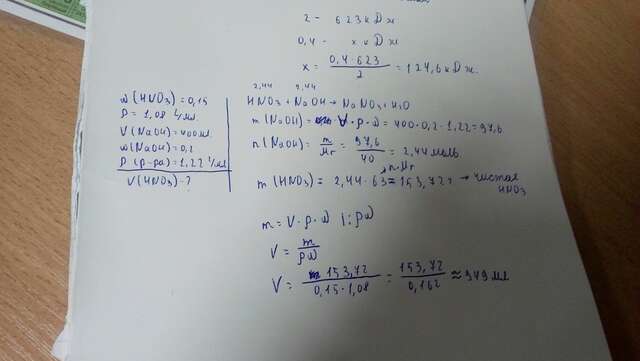 2 - 623 кДж
0,4 - x кДж
x = 0,4·623 / 2 = 124,6 кДж.
ω(HNO3) = 0,15
ρ = 1,08 г/мл.
V(NaOH) = 400мл.
ω(NaOH) = 0,2
ρ(р-ра) = 1,22 г/мл
V(HNO3) - ?
2,44 2,44
HNO3 + NaOH → NaNO3 + H2O
m(NaOH) = V·ρ·ω = 400·0,2·1,22 = 97,6
n(NaOH) = m / Mr = 97,6 / 40 = 2,44 моль.
n·Mr
m(HNO3) = 2,44·63 = 153,72 г → чистая
HNO3
m = V·ρ·ω |:ρω
V = m / ρω
V = 153,72 / 0,15·1,08 = 153,72 / 0,162 ≈ 949 мл